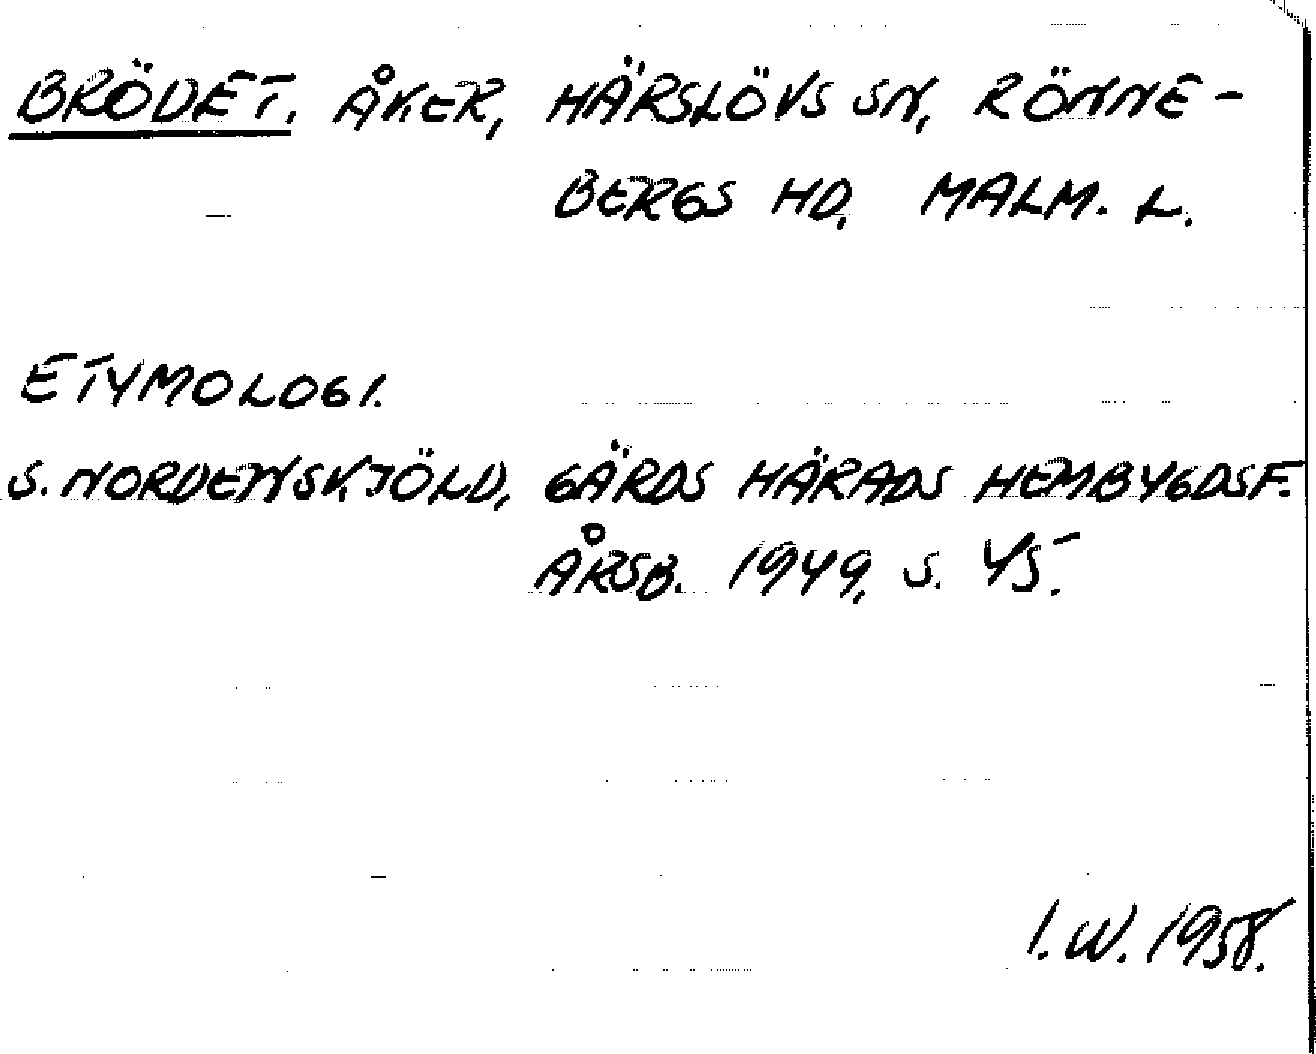 BRÖDET. ÅKER, HÄRSLÖVS SN, RÖNNE-
BERGS HD, MALM. L.
ETYMOLOGI.
S. NORDENSKJÖLD, GÄRDS HÄRADS HEMBYGDSF.
ÅRSB. 1949, S. 45.
I. W. 1958.